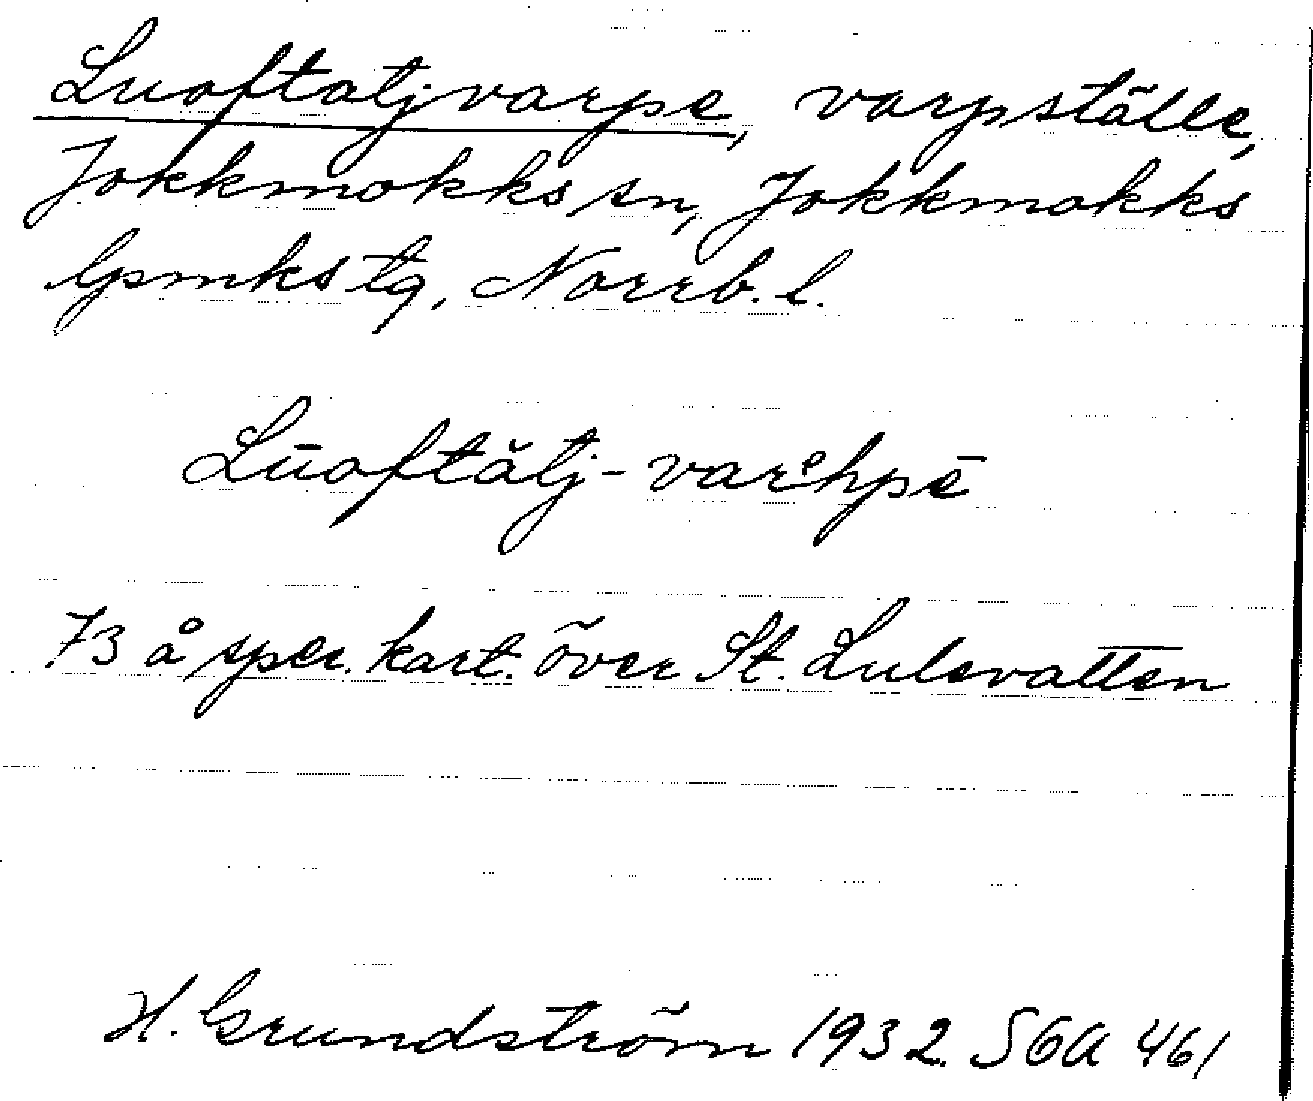 Luoftatjvarpe, varpställe,
Jokkmokks sn, Jokkmokks
lpmks tg, Norrb. l.
Lūoftătj-varᵉhpē
73 å spec. kart. över St. Lulevatten
H. Grundström 1932. SGA 461